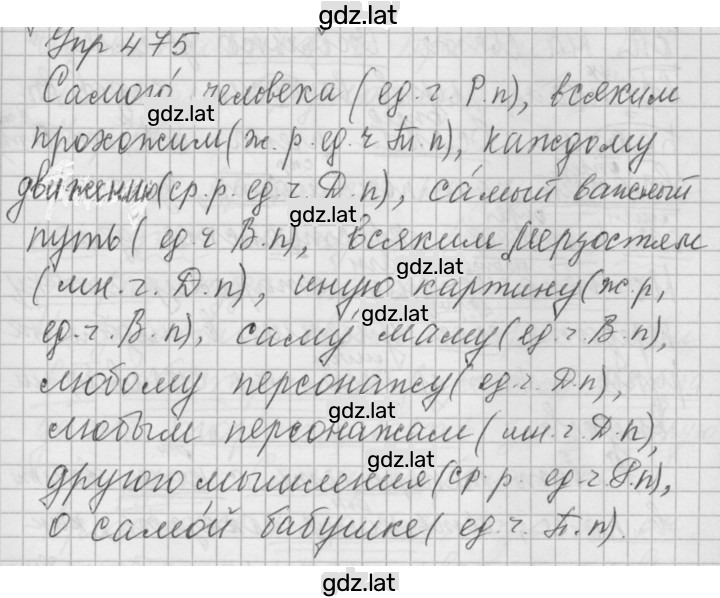 gdz.lat
Упр 475
Самого́ человека (ед.ч Р.п), всяким
gdz.lat
прохожим (ж.р.ед.ч Т.п), каждому
движению (ср.р. ед.ч. Д.п), са́мый важный
gdz.lat
путь (ед.ч В.п), всяким мерзостям
gdz.lat
(мн.ч. Д.п), иную картину (ж.р,
gdz.lat
ед.ч. В.п), саму́ маму (ед.ч. В.п),
любому персонажу (ед.ч. Д.п),
gdz.lat
любым персонажам (мн.ч. Д.п),
gdz.lat
другого мышления (ср.р. ед.ч Р.п),
о само́й бабушке (ед.ч. П.п).
gdz.lat